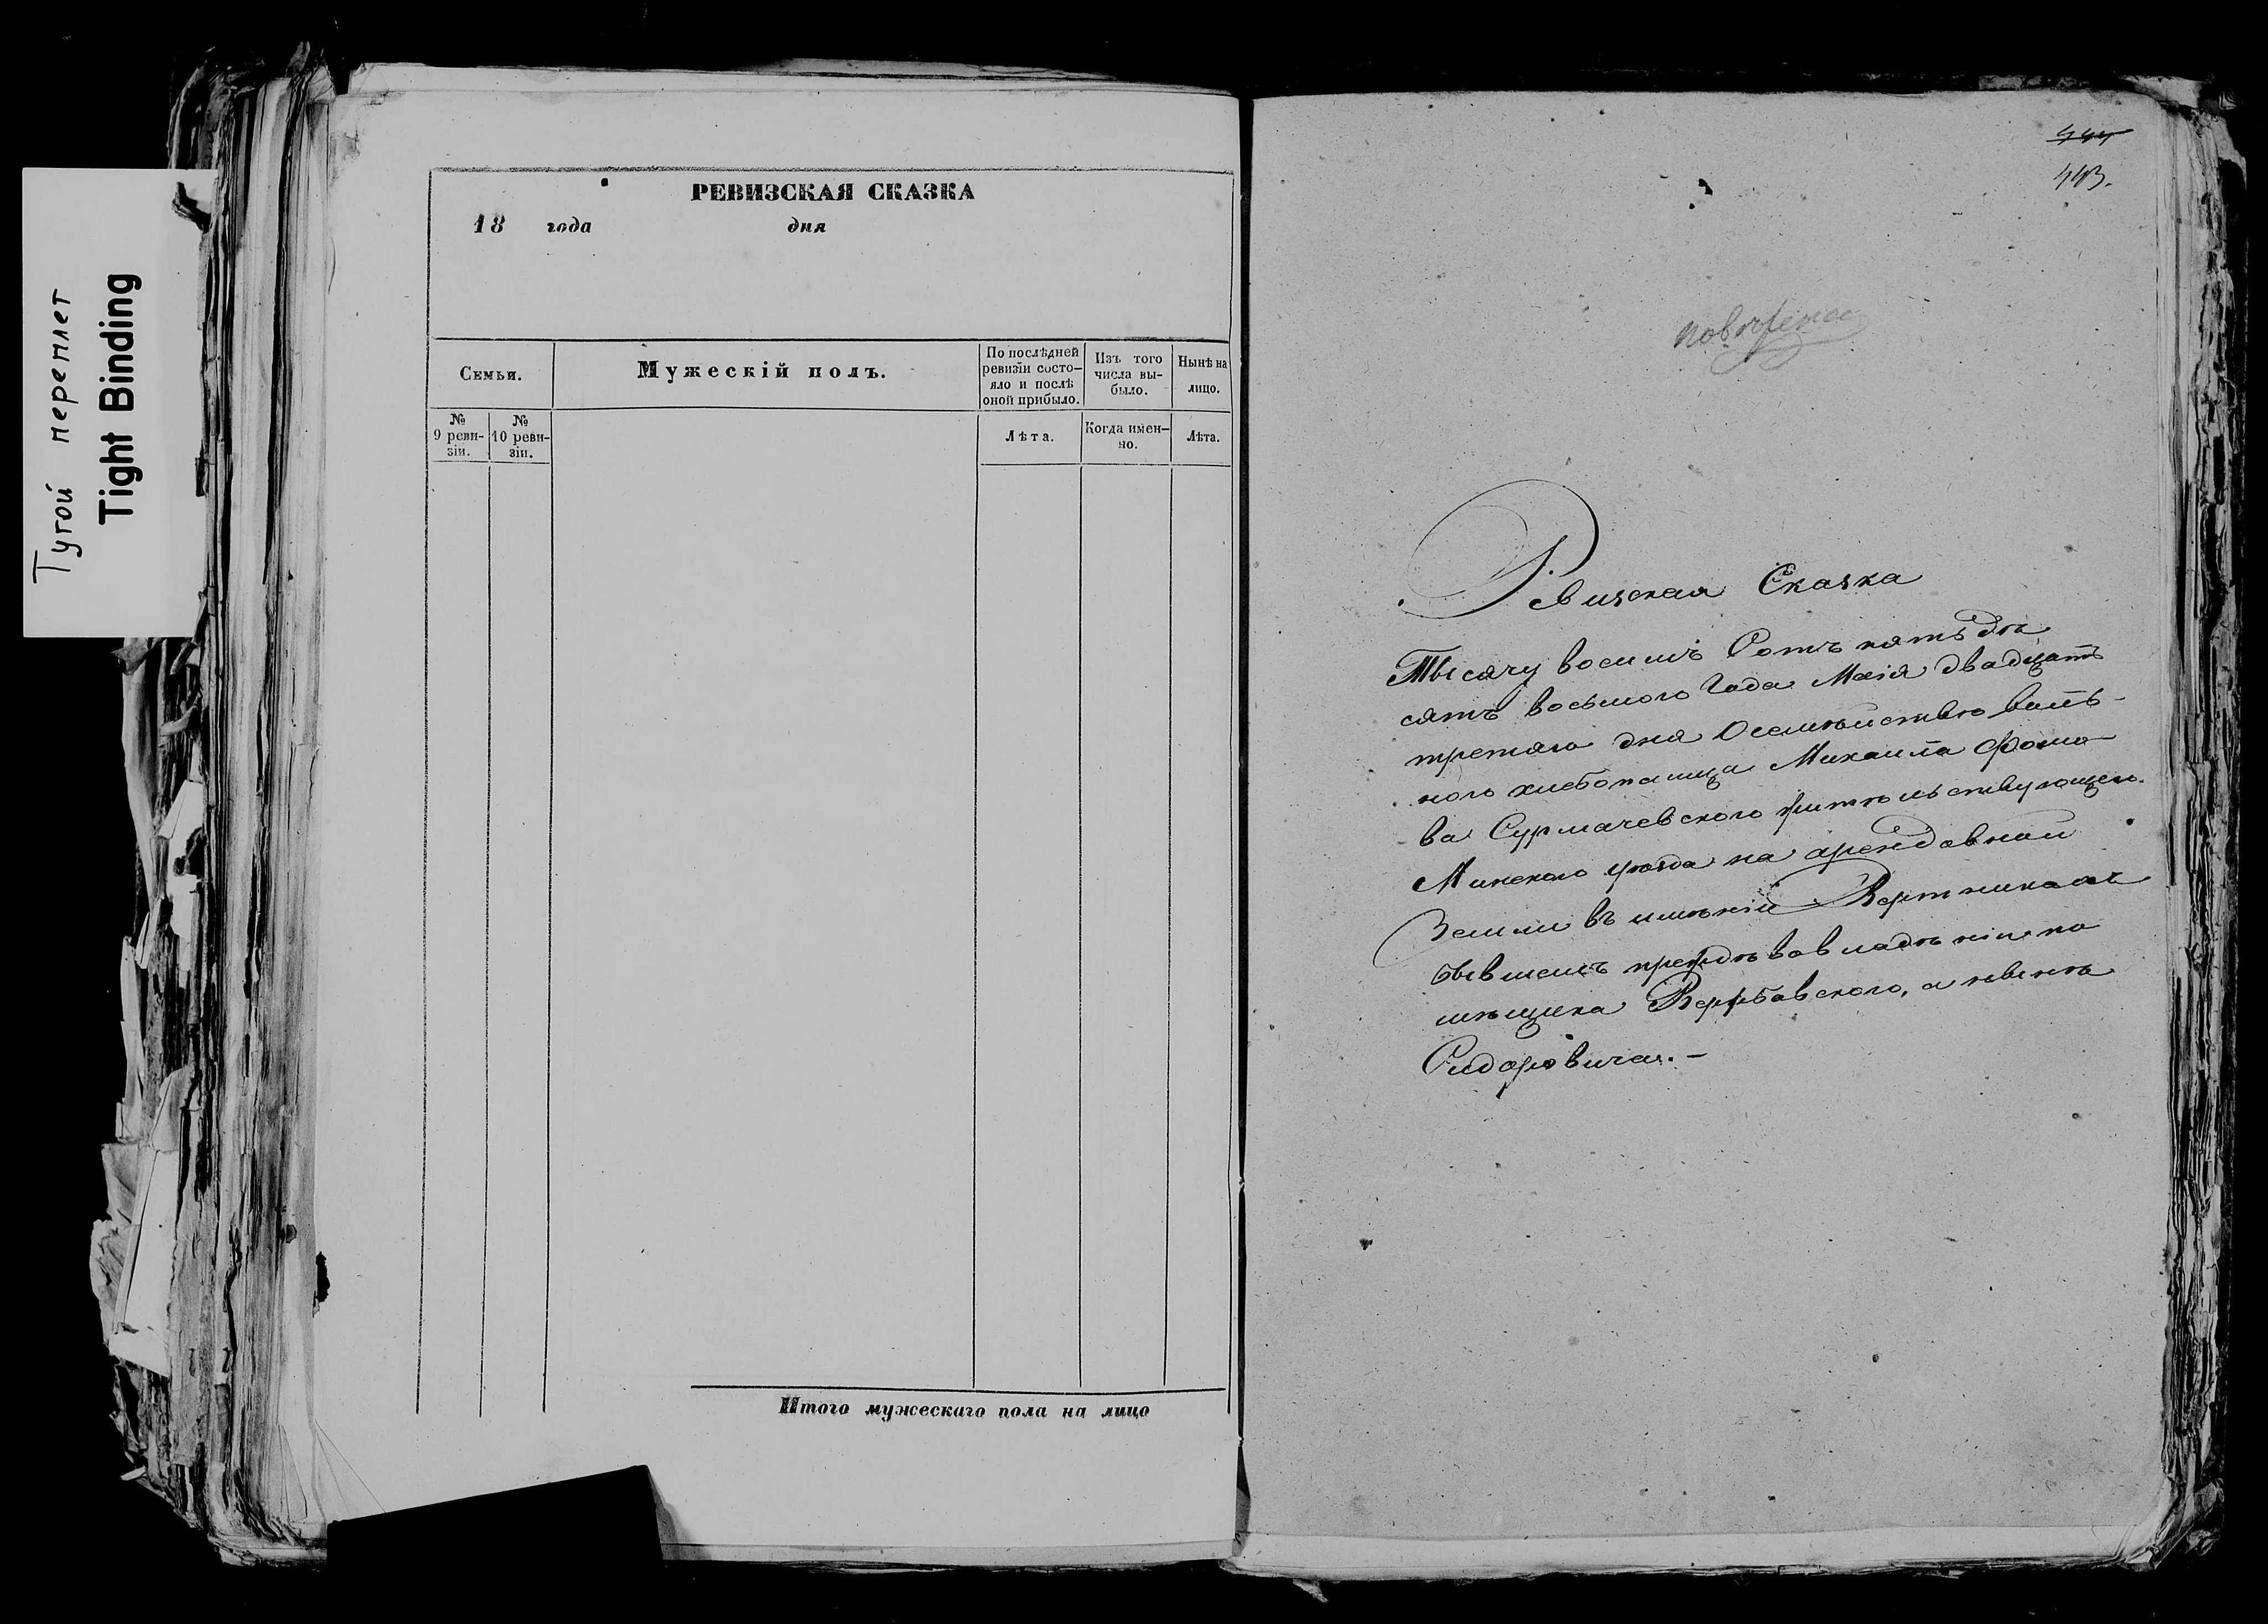 Тугой переплет
Tight Binding
РЕВИЗСКАЯ СКАЗКА
18 года дня
Семьи.
Мужескій полъ.
По послѣдней
ревизіи состо-
яло и послѣ
оной прибыло.
Изъ того
числа вы-
было.
Нынѣ на
лицо.
№
9 реви-
зіи.
№
10 реви-
зіи.
Лѣта.
Когда имен-
но.
Лѣта.
Итого мужескаго пола на лицо
443.
повѣрена
Ревизская Сказка
Тысячу восемъ Сотъ пятьдѣ
сятъ восьмого Года Маія двадцать
третяго дня Осемѣйствѣ воль-
ного хлебопашца Михаила Фоmо
ва Сурмачевского жительствующего
Минского уѣзда на арендовной
Земли въ имѣніи Вертникахъ
бывшемъ прежде вовладѣніи по
мѣщика Вержбовского, а нынѣ
Сидоровича. –